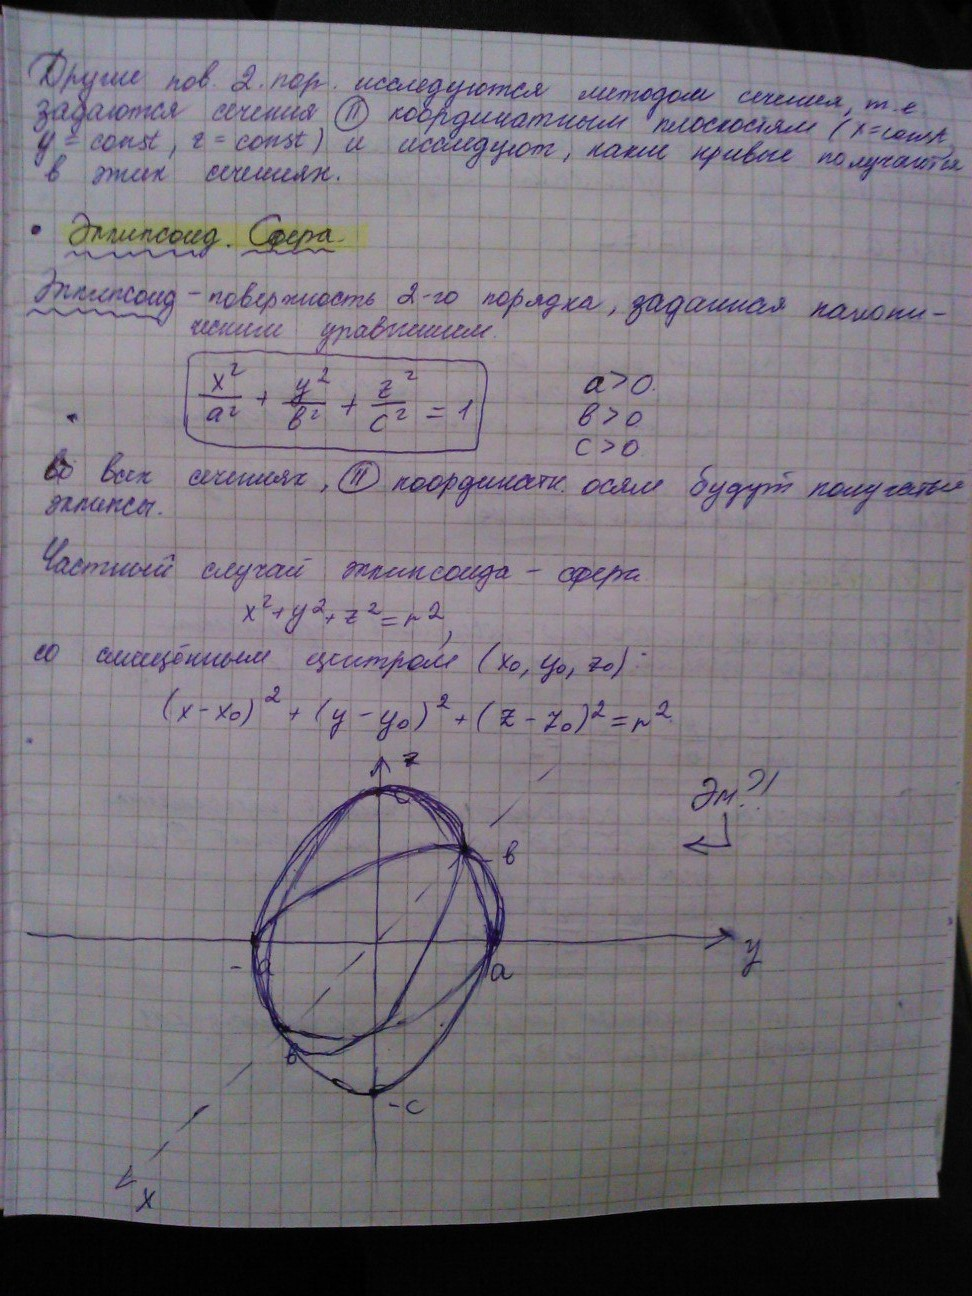 Другие пов. 2. пор. исследуются методом сечения, т.е.
задаются сечения || координатным плоскостям (x=const,
y=const, z=const) и исследуют, какие кривые получаются
в этих сечениях.
• Эллипсоид. Сфера.
Эллипсоид – поверхность 2-го порядка, заданная канони-
ческим уравнением.
x²/a² + y²/b² + z²/c² = 1
a>0.
b>0
c>0
Во всех сечениях, || координатн. осям будут получаться
эллипсы.
Частный случай эллипсоида – сфера
x²+y²+z²=r²,
со смещённым центром (x₀, y₀, z₀):
(x-x₀)²+(y-y₀)²+(z-z₀)²=r²
z
c
Эм?!
-b
y
-a
a
b
-c
x